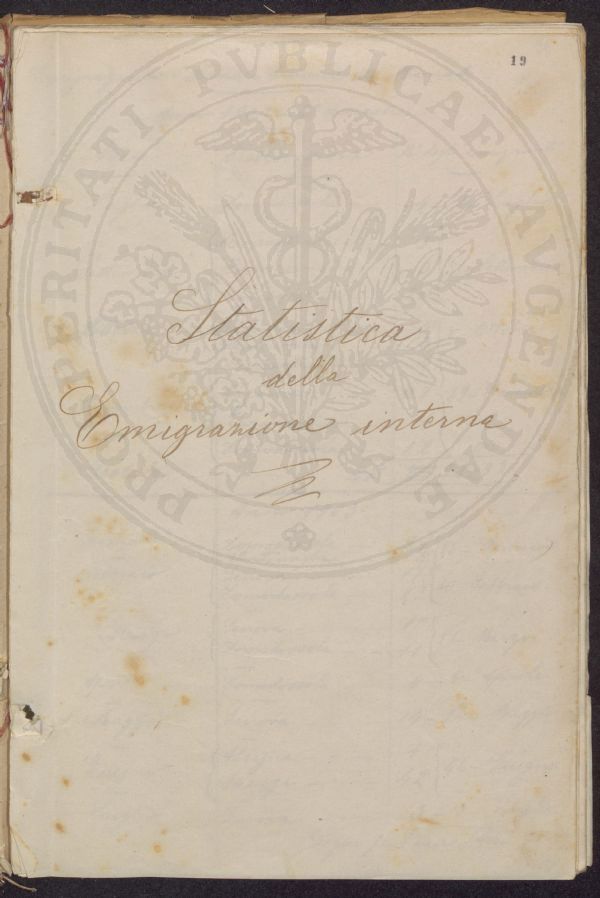 19
PROSPERITATI PVBLICAE AVGENDAE
Statistica
della
Emigrazione interna